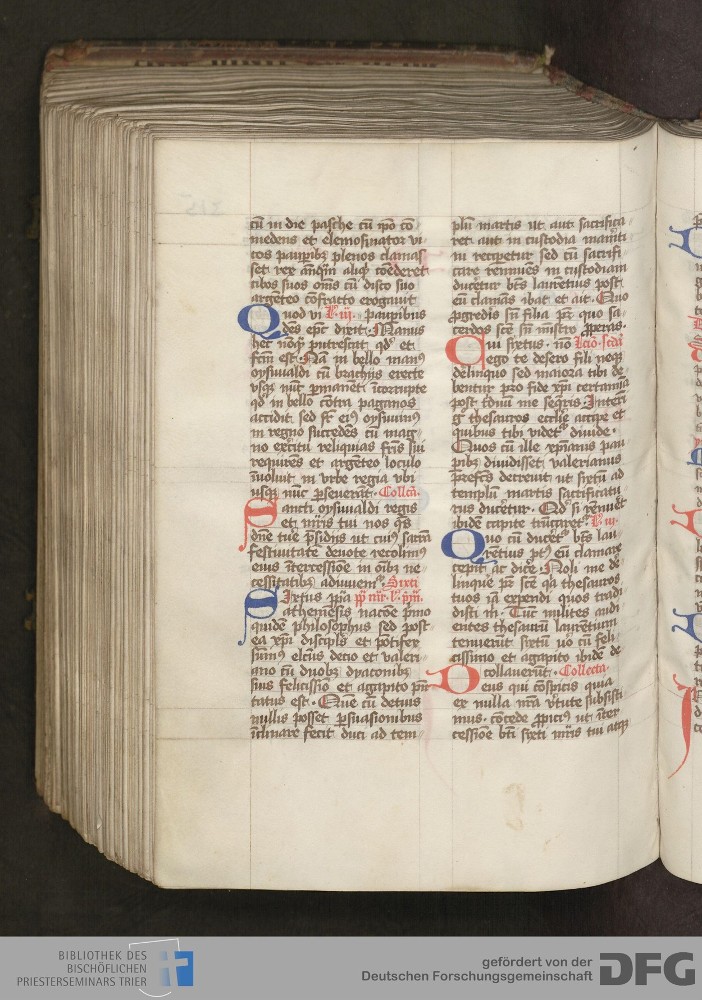 cū in die pasche cū ipō cō
medens et elemosinator vi
tos paupibȝ plenos clamas
set rex
cibos suos om̄s cū disco suo
argenteo cōfracto erogauit
Quod vi L. iij. pauperibus
dēs epc̄ dixit. Manus
hec nōqȝ putrescat qd et
fcm̄ est. Nā in bello manꝰ
oysuualdi cū brachijs erecte
vsqȝ nūc pmanēt īcorrupte
qd in bello cōtra paganos
accidit sed fr̄ eiꝰ oysuuinꝰ
in regno succedēs cū mag
no exc̄itu reliquias fr̄is sui
requirēs et argenteo loculo
īuoluit in vrbe regia vbi
usqȝ nūc pseuerāt. Collcā.
Sancti oysuualdi regis
et mr̄is tui nos qs̄
dn̄e tue psidijs ut cuiꝰ sacrā
festiuitate deuote recolimꝰ
eius ītercessiōe in oībȝ ne
cessitatibȝ adiuuemꝰ. Sixti
Sixtus ppa
atheniēsis nacōe pmo
quidē philosophus sed post
ea xpī discipls et pōtifex
sūmꝰ elcūs decio et valeri
ano cū duobȝ dyaconibȝ
suis felicissīo et agapito pn̄
tatus est. Que cū detius
nullis posset psuasionibus
īclinare fecit duci ad tem
plū martis ut aut sacrifica
ret aut in custodia mam̄ti
ni recipetur sed cū sacrifi
care rennuēs in custodiam
ducetur bt̄s laurētius post
eū clamās ibat et ait. Quo
pgredis sn̄ filia pr̄ quo sa
cerdos scē sn̄ mistro pperas.
Cui sixtus. nō Lcīo. scdā
ego te desero fili neqȝ
delinquo sed maiora tibi de
bentur pro fide xpī certamīa
post tduū me seqris. Interī
g thesauros ecclīe accipe et
quibus tibi videt diuide.
Quos cū ille xpīanis pau
pibȝ diuidisset valerianus
prefcs decreuit ut sixtū ad
templū martis sacrificatu
rus ducetur. Qd si rennuet
ibidē capite tūcaret. L. iij.
Quo cū ducet bt̄s lau
rētius ptꝰ eū clamare
cepit ac dice. Noli me de
linque pr̄ scē qa thesauros
tuos iā expendi quos tradi
disti m̄. Tūc milites audi
entes thesaurū laurētium
tenuerūt sixtū uo cū feli
cissimo et agapito ibidē de
collauerūt. Collecta.
Deus qui cōspicis quia
ex nulla nrā vtute subsisti
mus. cōcede ppicius ut īter
cessiōe bt̄i sixti mr̄is tui atqȝ
BIBLIOTHEK DES
BISCHÖFLICHEN
PRIESTERSEMINARS TRIER
gefördert von der
Deutschen Forschungsgemeinschaft
DFG